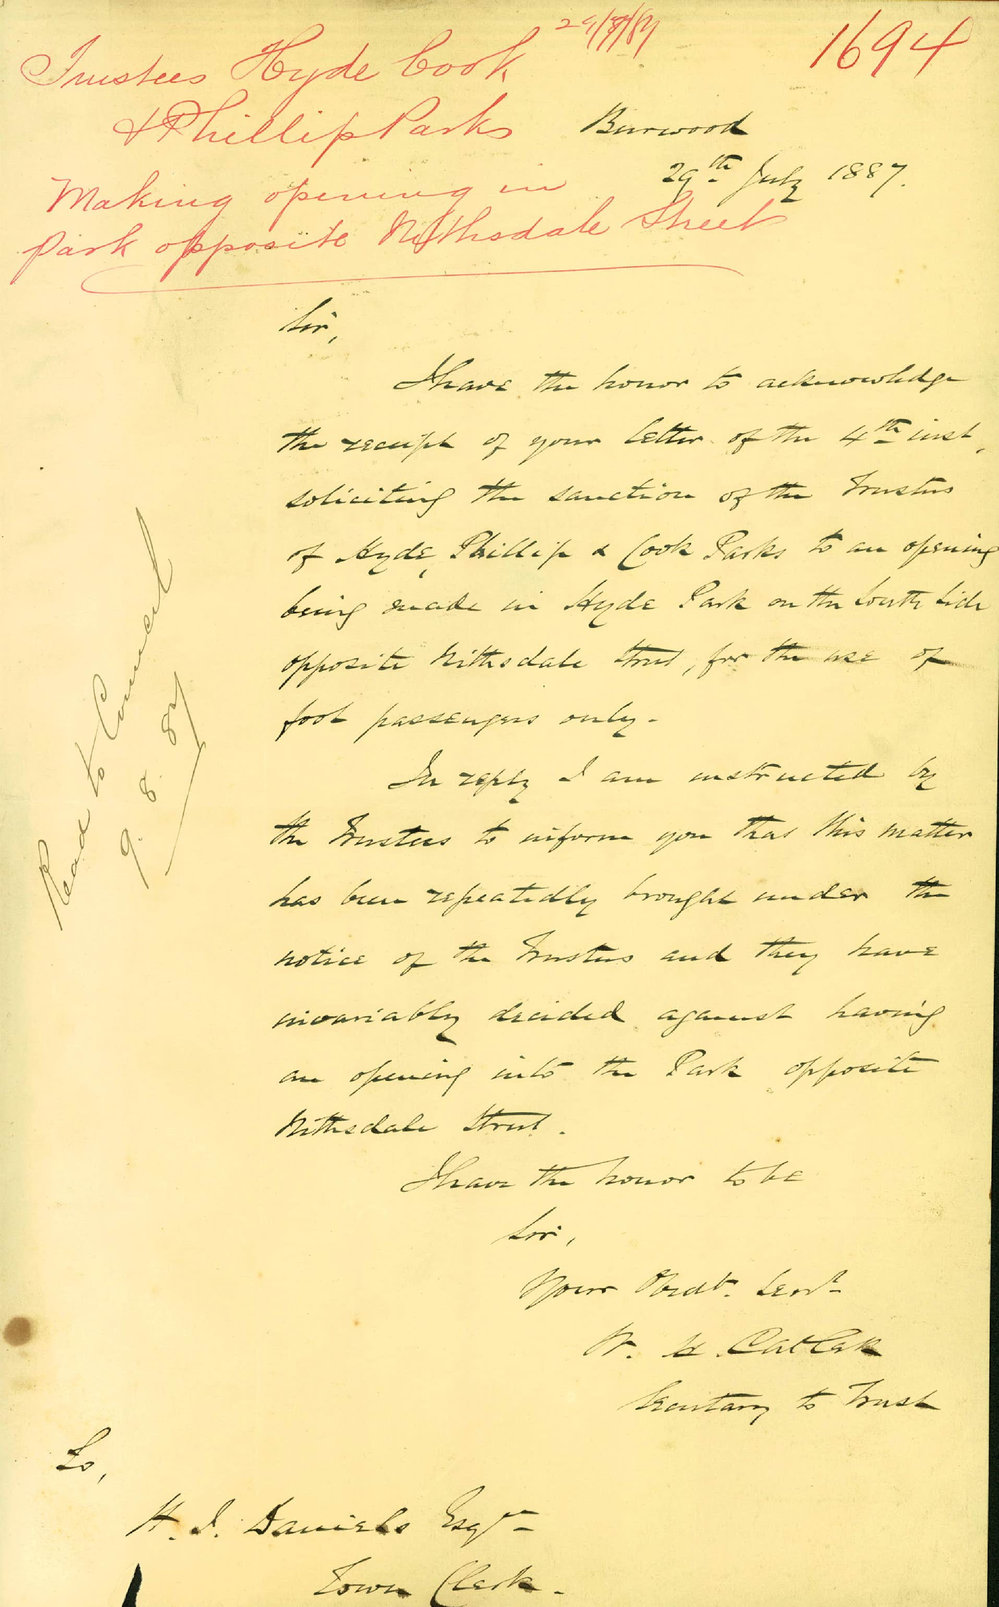 29/7/87
1694
Trustees Hyde Cook
& Phillip Parks
Making opening in
Park opposite Nithsdale Street
Burwood
29th July 1887.
Sir,
I have the honor to acknowledge
the receipt of your letter of the 4th inst,
soliciting the sanction of the Trustees
of Hyde, Phillip & Cook Parks to an opening
being made in Hyde Park on the South Side
opposite Nithsdale Street, for the use of
foot passengers only.
In reply I am instructed by
the Trustees to inform you that this matter
has been repeatedly brought under the
notice of the Trustees and they have
invariably decided against having
an opening into the Park opposite
Nithsdale Street.
I have the honor to be
Sir,
Your Obedt. Servt.
W. H. Catlett
Secretary to Trust
Read to Council
9. 8. 87
To,
H. J. Daniels Esqre
Town Clerk.